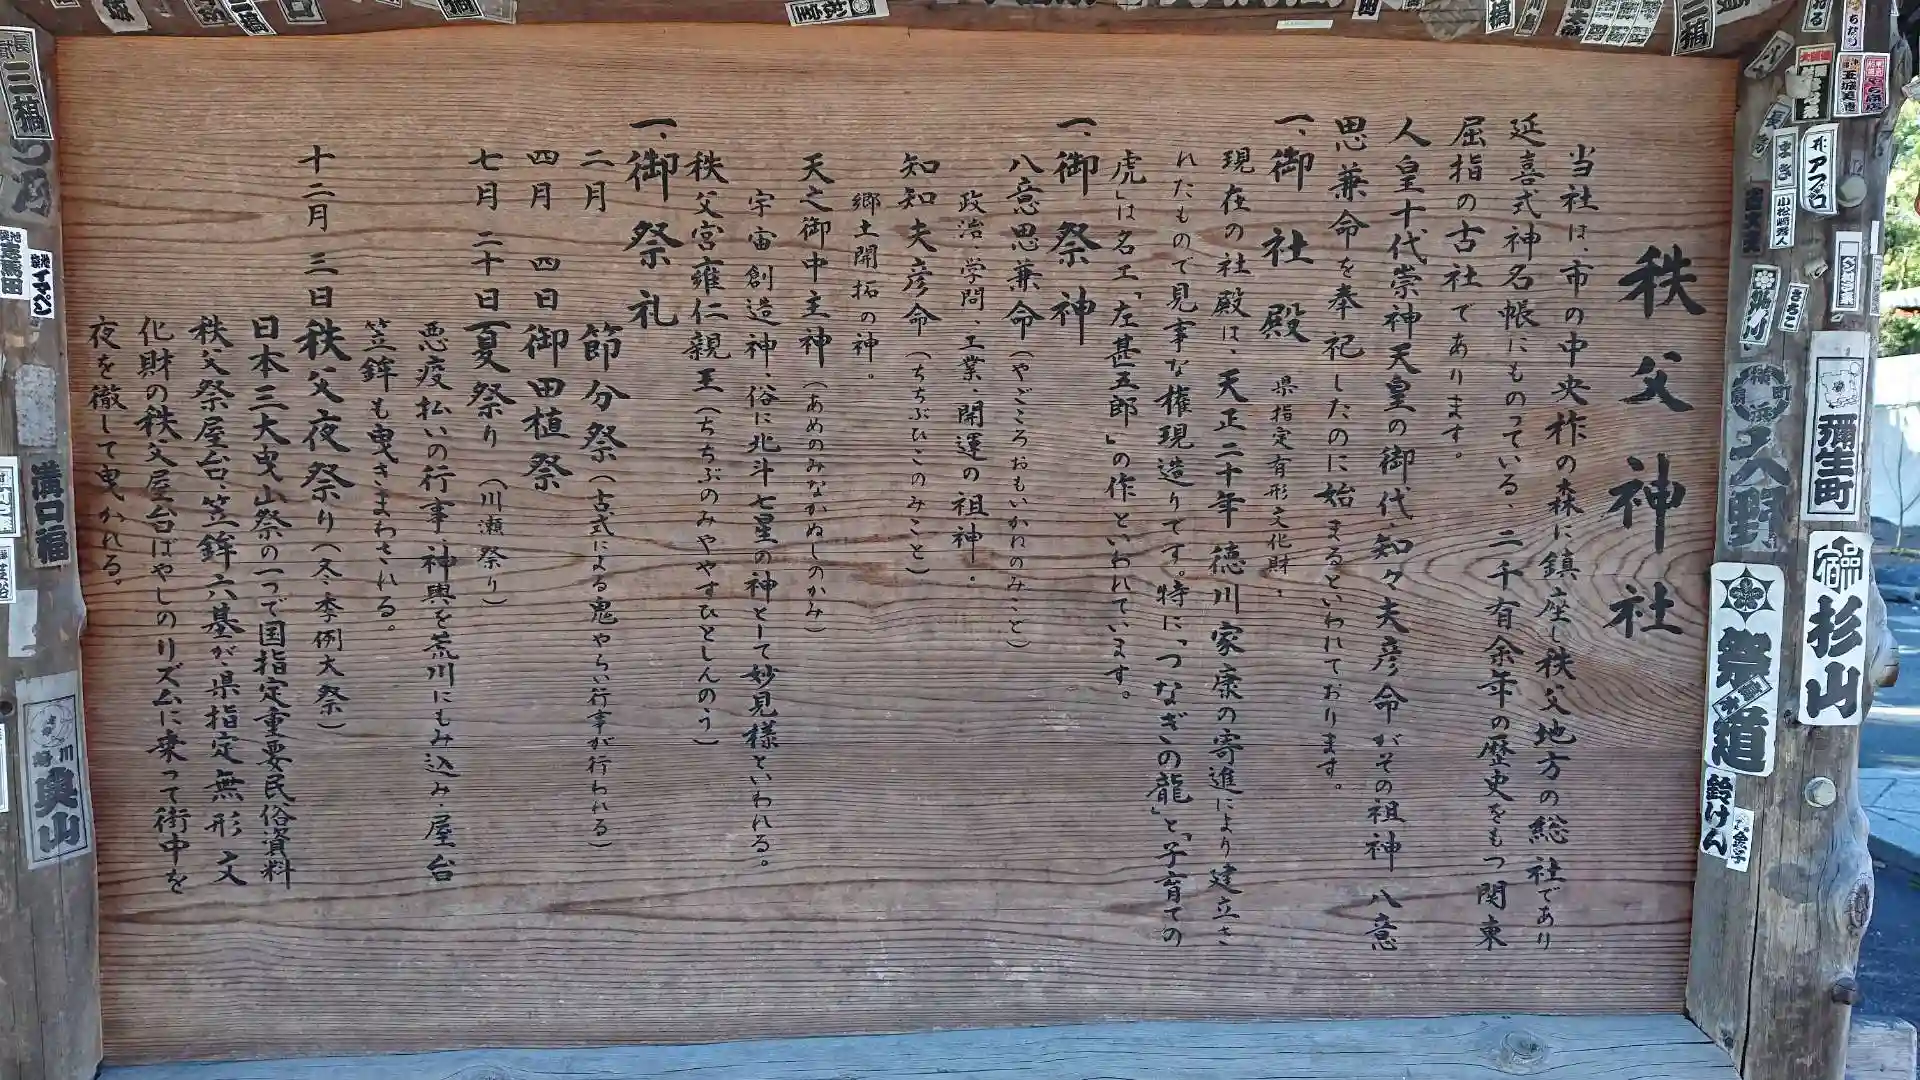 秩父神社
当社は、市の中央柞の森に鎮座し秩父地方の総社であり
延喜式神名帳にものっている、二千有余年の歴史をもつ関東
屈指の古社であります。
人皇十代崇神天皇の御代、知々夫彦命がその祖神 八意
思兼命を奉祀したのに始まるといわれております。
一、御社殿 県指定有形文化財、
現在の社殿は、天正二十年 徳川家康の寄進により建立さ
れたもので見事な権現造りです。特に「つなぎの龍」と「子育ての
虎」は名工「左甚五郎」の作といわれています。
一、御祭神
八意思兼命(やごころおもいかねのみこと)
政治、学問、工業、開運の祖神。
知知夫彦命(ちちぶひこのみこと)
郷土開拓の神。
天之御中主神(あめのみなかぬしのかみ)
宇宙創造神、俗に北斗七星の神として妙見様といわれる。
秩父宮雍仁親王(ちちぶのみややすひとしんのう)
一、御祭礼
二月 節分祭(古式による鬼やらい行事が行われる)
四月 四日 御田植祭
七月 二十日 夏祭り (川瀬祭り)
悪疫払いの行事、神輿を荒川にもみ込み、屋台
笠鉾も曳きまわされる。
十二月 三日 秩父夜祭り(冬季例大祭)
日本三大曳山祭の一つで国指定重要民俗資料
秩父祭屋台、笠鉾六基が、県指定無形文
化財の秩父屋台ばやしのリズムに乗って街中を
夜を徹して曳かれる。
彌生町
杉山
祭道
鈴けん
久野
溝口福
奥山